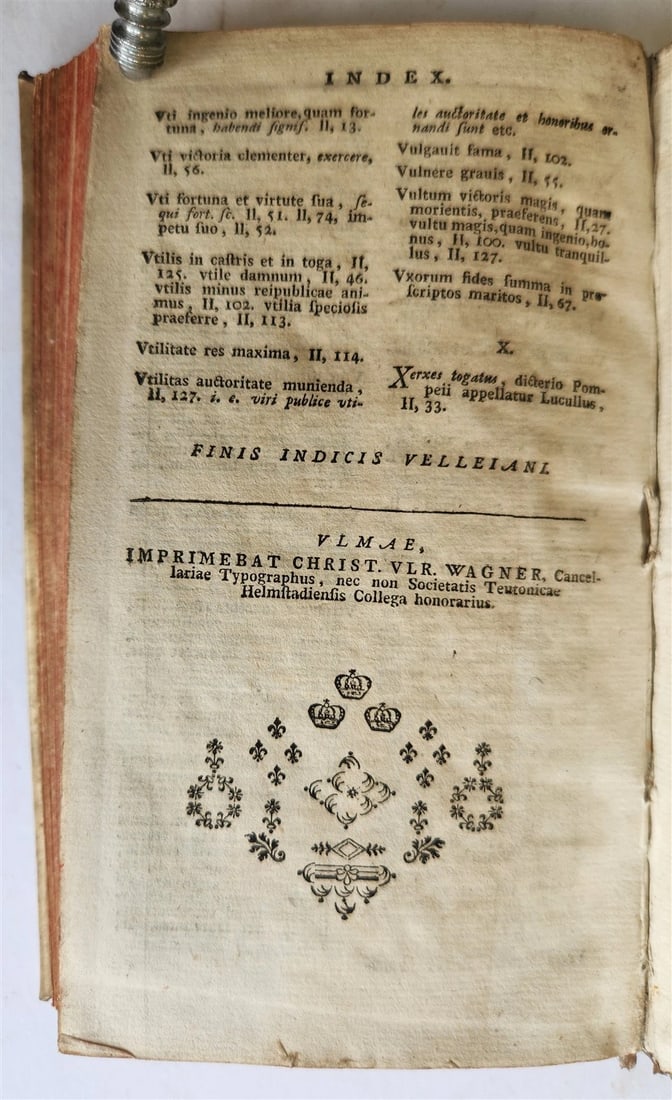 INDEX.
Vti ingenio meliore, quam for-
tuna, habendi ſignif. II, 13.
Vti victoria clementer, exercere,
II, 56.
Vti fortuna et virtute ſua, ſe-
qui fort. ſc. II, 51. II, 74, im-
petu ſuo, II, 52.
Vtilis in caſtris et in toga, II,
125. vtile damnum, II, 46.
vtilis minus reipublicae ani-
mus, II, 102. vtilia ſpecioſis
praeferre, II, 113.
Vtilitate res maxima, II, 114.
Vtilitas auctoritate munienda,
II, 127. i. e. viri publice vti-
les auctoritate et honoribus or-
nandi ſunt etc.
Vulgauit fama, II, 102.
Vulnere grauis, II, 55.
Vultum victoris magis, quam
morientis, praeferens, II, 27.
vultu magis, quam ingenio, bo-
nus, II, 100. vultu tranquil-
lus, II, 127.
Vxorum fides ſumma in pro-
ſcriptos maritos, II, 67.
X.
Xerxes togatus, dicterio Pom-
peii appellatur Lucullus,
II, 33.
FINIS INDICIS VELLEIANI.
VLMAE,
IMPRIMEBAT CHRIST. VLR. WAGNER, Cancel-
lariae Typographus, nec non Societatis Teutonicae
Helmſtadienſis Collega honorarius.